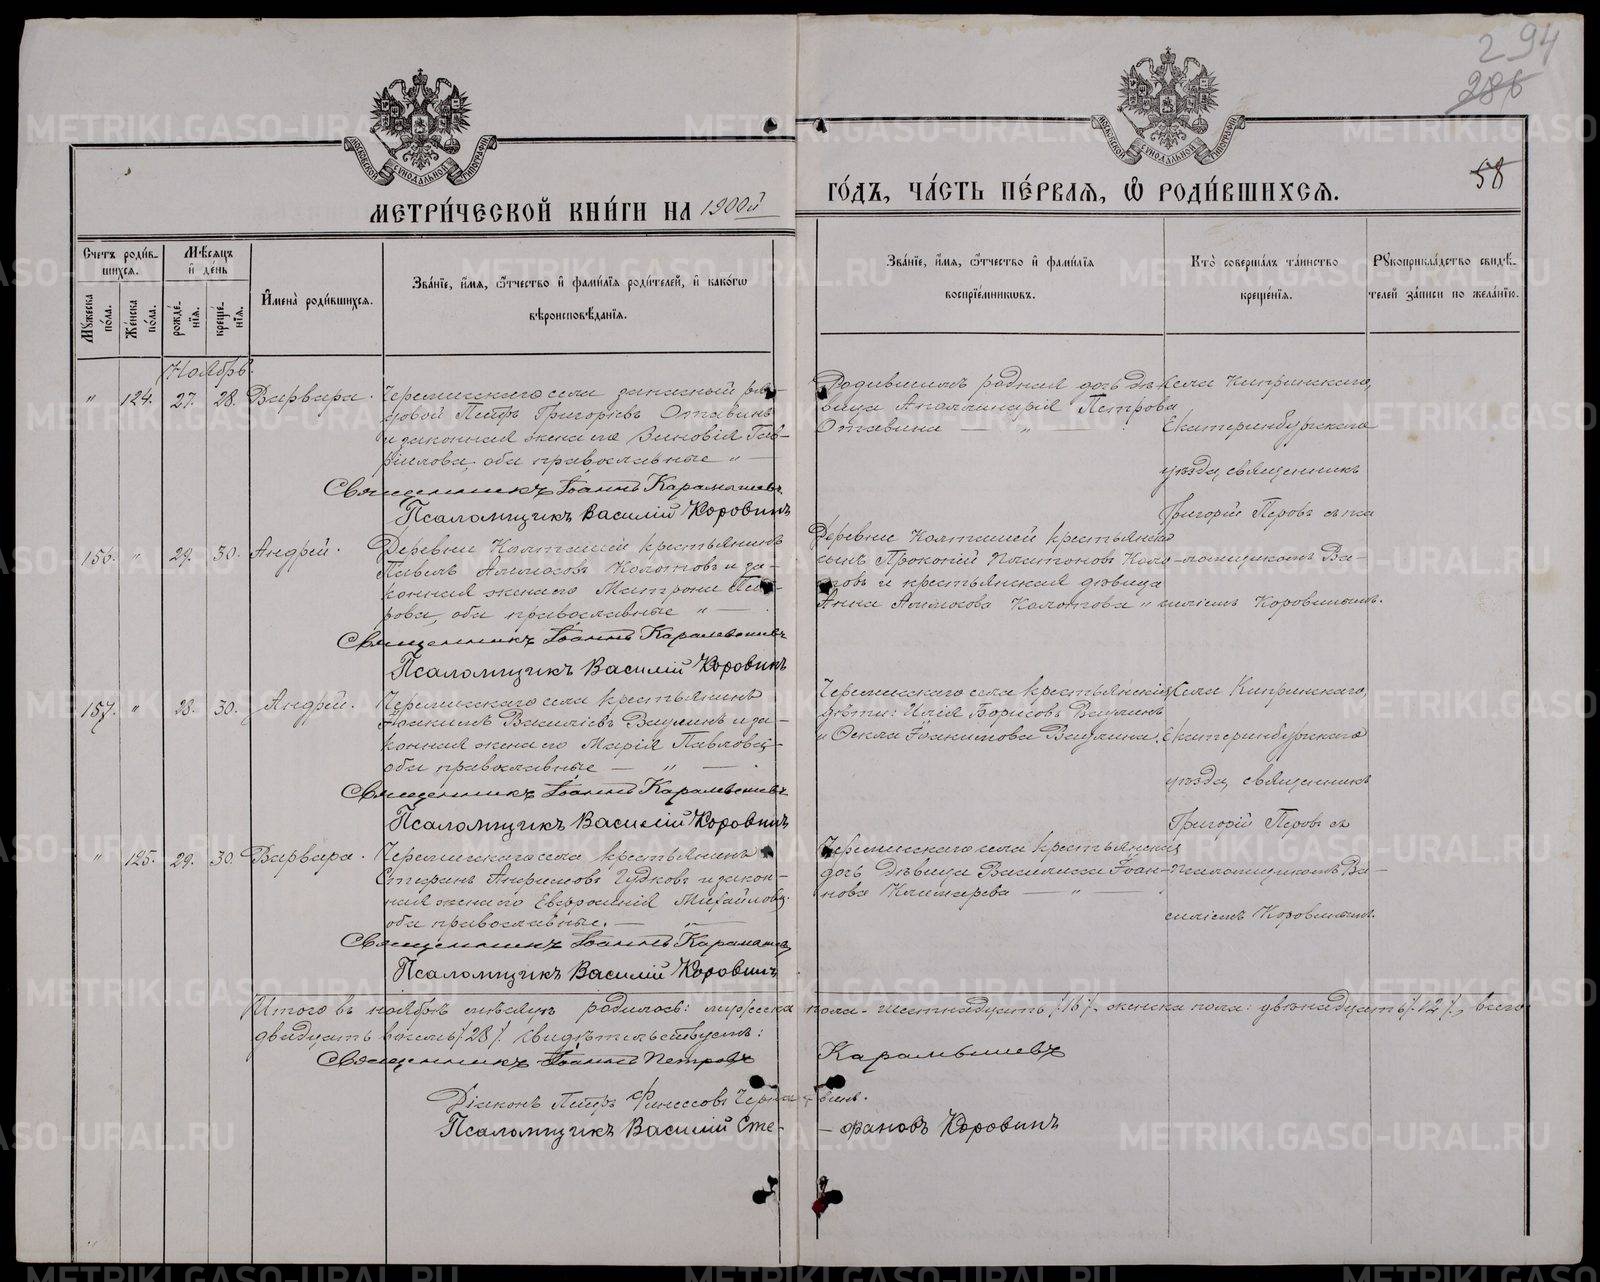 2 94
286
58
МОСКОВСКОЙ СѴНОДАЛЬНОЙ ТИПОГРАФІИ
МОСКОВСКОЙ СѴНОДАЛЬНОЙ ТИПОГРАФІИ
МЕТРИ́ЧЕСКОЙ КНИ́ГИ НА 1900й ГО́ДЪ, ЧА́СТЬ ПЕ́РВАЯ, Ѡ РОДИ́ВШИХСЯ.
Счетъ роди́вшихся.
Мꙋжеска по́ла.
Же́нска по́ла.
Мѣ́сяцъ и҆ де́нь
рожде́нїя.
креще́нїя.
И҆мена̀ роди́вшихся.
Зва́нїе, и҆́мя, ѻ҆́тчество и҆ фами́лїя роди́телей, и҆ како́гѡ вѣроисповѣ́данїя.
Зва́нїе, и҆́мя, ѻ҆́тчество и҆ фами́лїя воспрїе́мниковъ.
Кто̀ соверша́лъ та́инство креще́нїя.
Рꙋкоприкла́дство свидѣ́телей за́писи по жела́нїю.
Ноябрь.
" 124. 27. 28. Варвара. Черемисскаго села запасный ря-
довой Петръ Григорьевъ Отавинъ
и законная жена его Зиновія Гав-
ріилова, оба православные "
Священникъ Іоаннъ Карамышевъ
Псаломщикъ Василій Коровинъ
Родившимъ родная дочь дѣ-
вица Аполлинарія Петрова
Отавина "
Села Кипринскаго,
Екатеринбургскаго
уѣзда, священникъ
Григорій Перовъ съ пса-
ломщикомъ Ва-
силіемъ Коровинымъ.
156. " 29. 30. Андрей. Деревни Колташей крестьянинъ
Павелъ Колотовъ и за-
конная жена его Матрона Пет-
рова, оба православные "
Священникъ Іоаннъ Карамышевъ
Псаломщикъ Василій Коровинъ
Деревни Колташей крестьянскій
сынъ Прокопій Платоновъ Коло-
товъ и крестьянская дѣвица
Анна Колотова "
157. " 28. 30. Андрей. Черемисскаго села крестьянинъ
Іоакимъ Василіевъ Ваулинъ и за-
конная жена его Марія Павлова,
оба православные "
Священникъ Іоаннъ Карамышевъ
Псаломщикъ Василій Коровинъ
Черемисскаго села крестьянскіе
дѣти: Илія Борисовъ Ваулинъ
и Ѳекла Іоакимова Ваулина.
Села Кипринскаго,
Екатеринбургскаго
уѣзда, священникъ
Григорій Перовъ съ
псаломщикомъ Ва-
силіемъ Коровинымъ.
" 125. 29. 30. Варвара. Черемисскаго села крестьянинъ
Стефанъ Гудковъ и закон-
ная жена его Евфросинія Михайлова,
оба православные. "
Священникъ Іоаннъ Карамышевъ
Псаломщикъ Василій Коровинъ
Черемисскаго села крестьянская
дочь дѣвица Василиса Іоан-
нова "
Итого въ ноябрѣ мѣсяцѣ родилось: мужеска пола - шестнадцать /16/, женска пола: двѣнадцать /12/, всего
двадцать восемь /28/. Свидѣтельствуемъ:
Священникъ Іоаннъ Петровъ Карамышевъ
Діаконъ Петръ
Псаломщикъ Василій Сте- -фановъ Коровинъ
METRIKI.GASO-URAL.RU